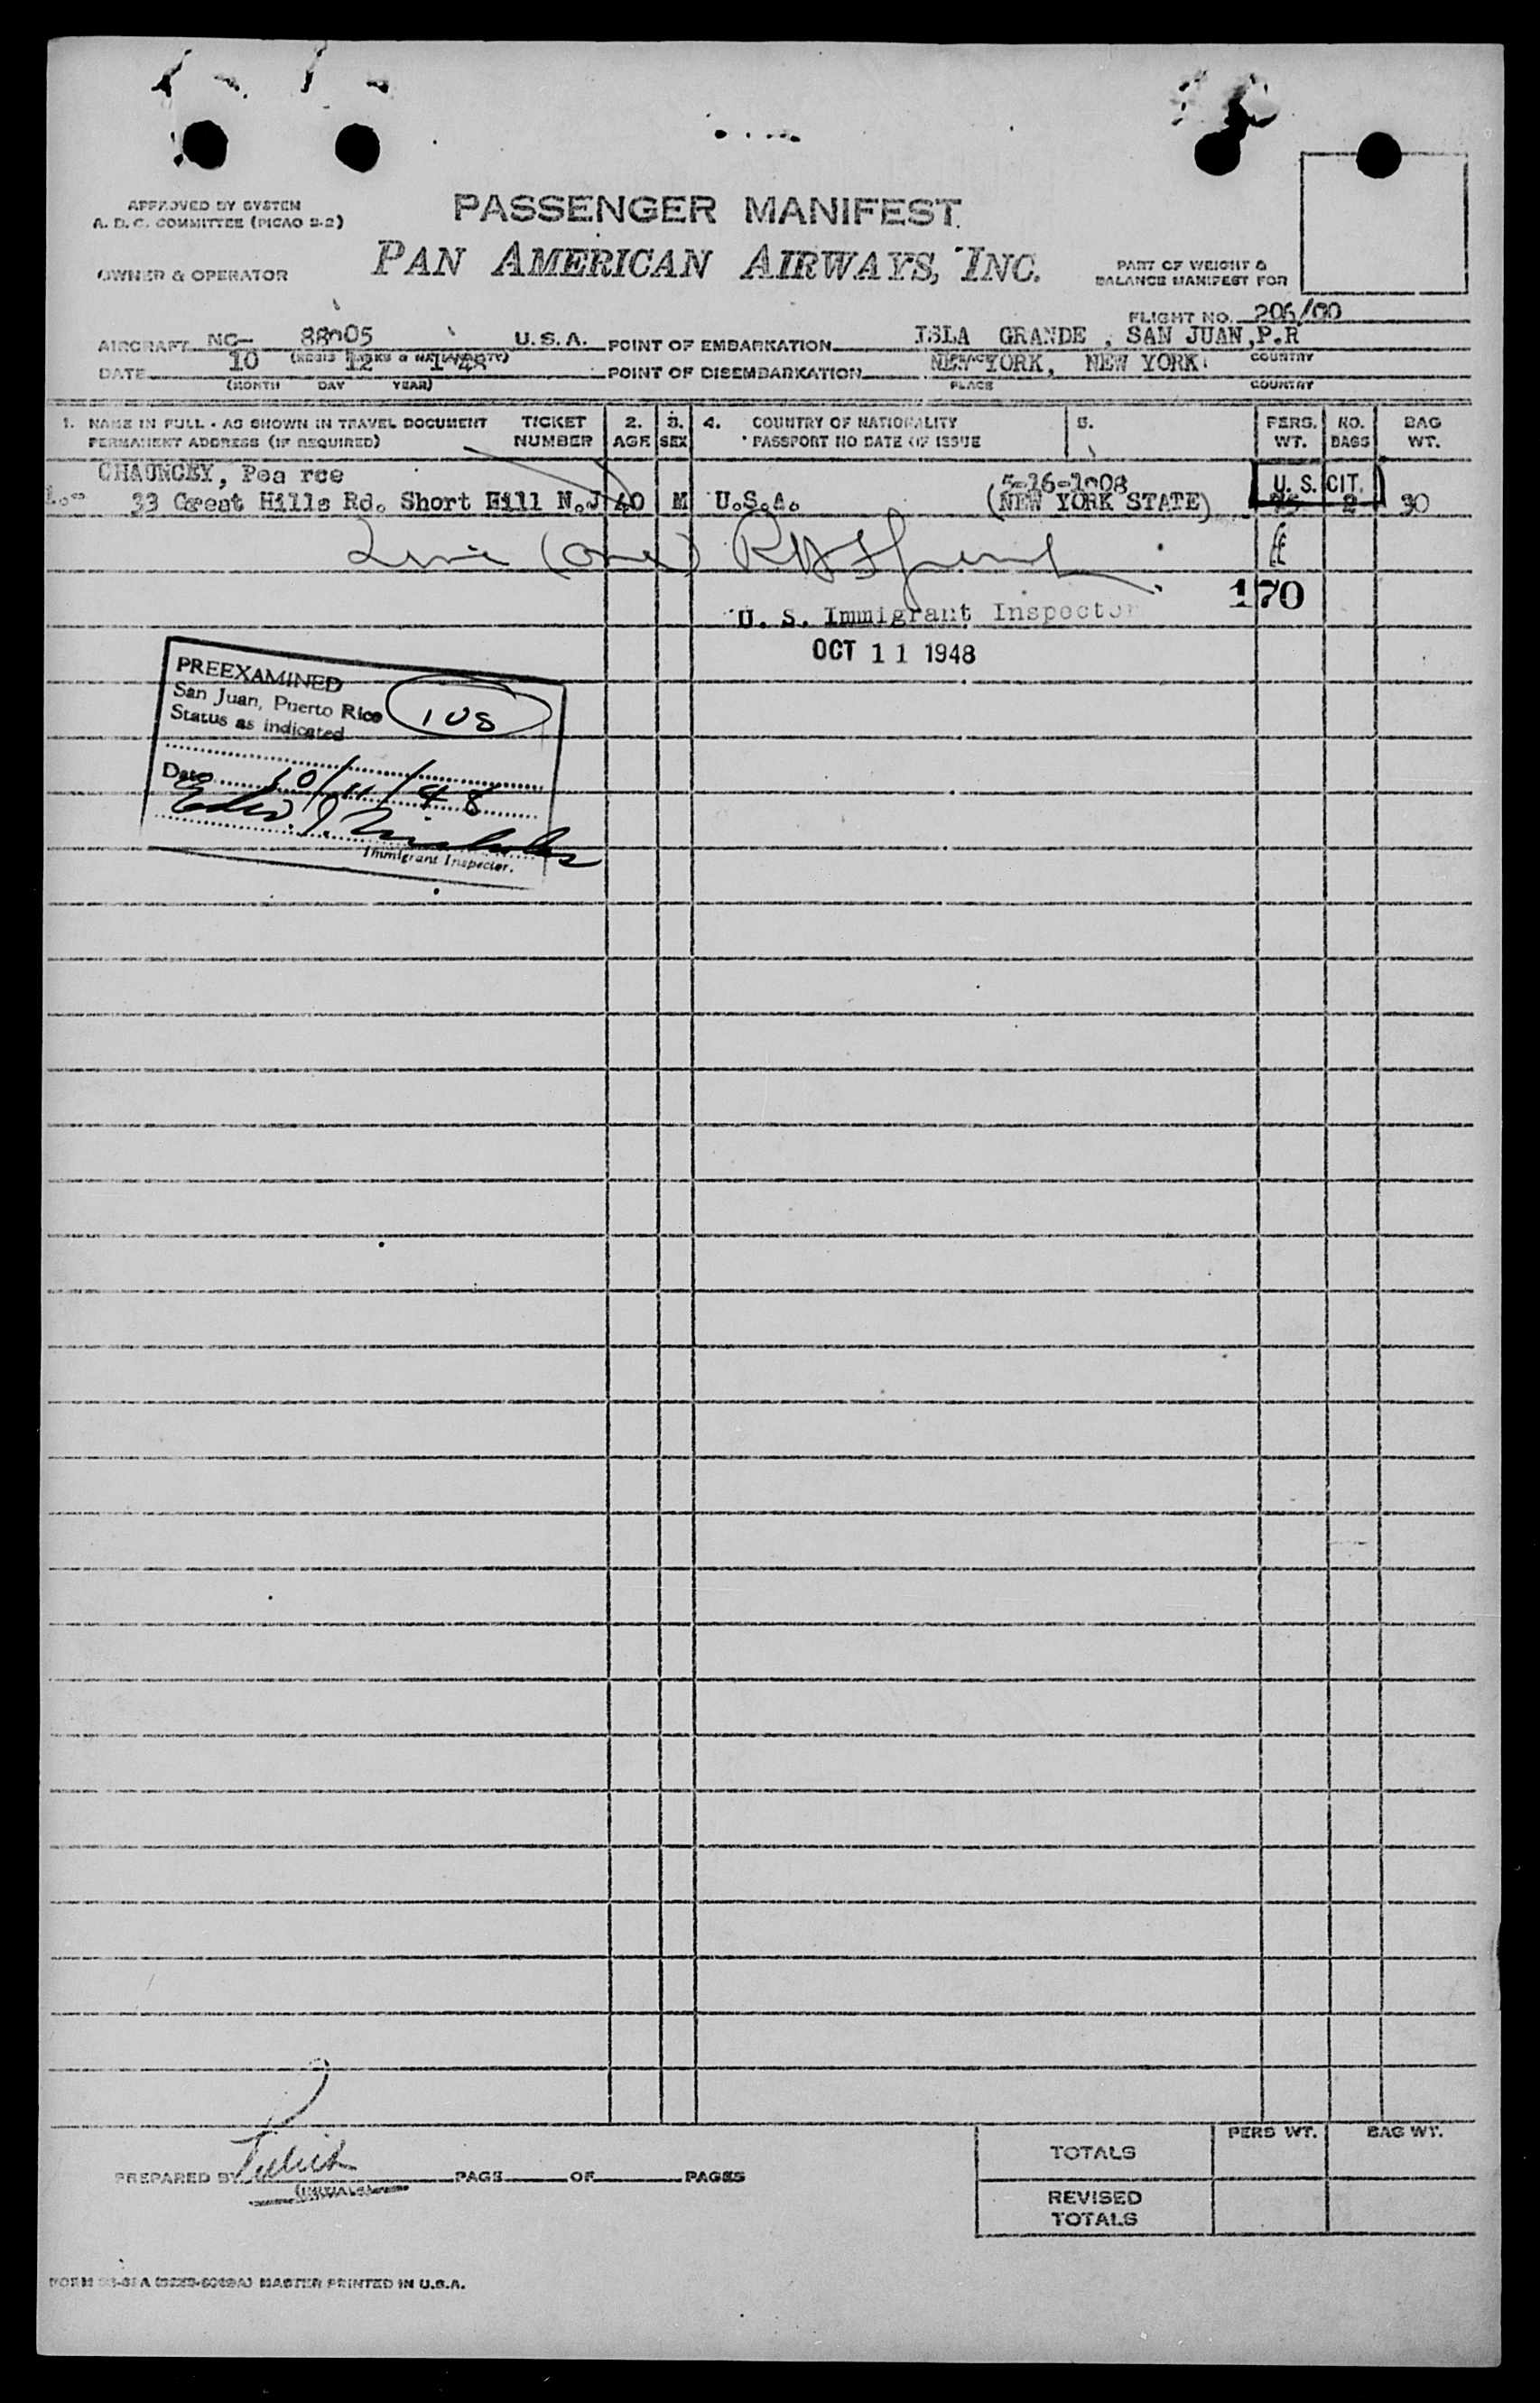 APPROVED BY SYSTEM
A. D. C. COMMITTEE (PICAO 2-2)
PASSENGER MANIFEST
OWNER & OPERATOR
PAN AMERICAN AIRWAYS, INC.
PART OF WEIGHT &
BALANCE MANIFEST FOR
FLIGHT NO. 206/00
AIRCRAFT NC- 88905 U. S. A. POINT OF EMBARKATION ISLA GRANDE , SAN JUAN,P.R
PLACE COUNTRY
DATE 10 12 1948 POINT OF DISEMBARKATION NEW YORK, NEW YORK
(MONTH DAY YEAR) PLACE COUNTRY
1. NAME IN FULL - AS SHOWN IN TRAVEL DOCUMENT TICKET 2. 3. 4. COUNTRY OF NATIONALITY 5. PERS. NO. BAG
PERMANENT ADDRESS (IF REQUIRED) NUMBER AGE SEX PASSPORT NO DATE OF ISSUE WT. BAGS WT.
CHAUNCEY, Pea rce 5-16-1908 U. S. CIT.
33 Great Hills Rd. Short Hill N.J 40 M U.S.A. (NEW YORK STATE) 2 30
(one)
170
U. S. Immigrant Inspector
OCT 11 1948
PREEXAMINED
San Juan, Puerto Rico
1 US
Status as indicated
Date 10/11/48
Immigrant Inspector.
PREPARED BY PAGE OF PAGES
(INITIALS)
TOTALS PERS WT. BAG WT.
REVISED
TOTALS
MASTER PRINTED IN U.S.A.